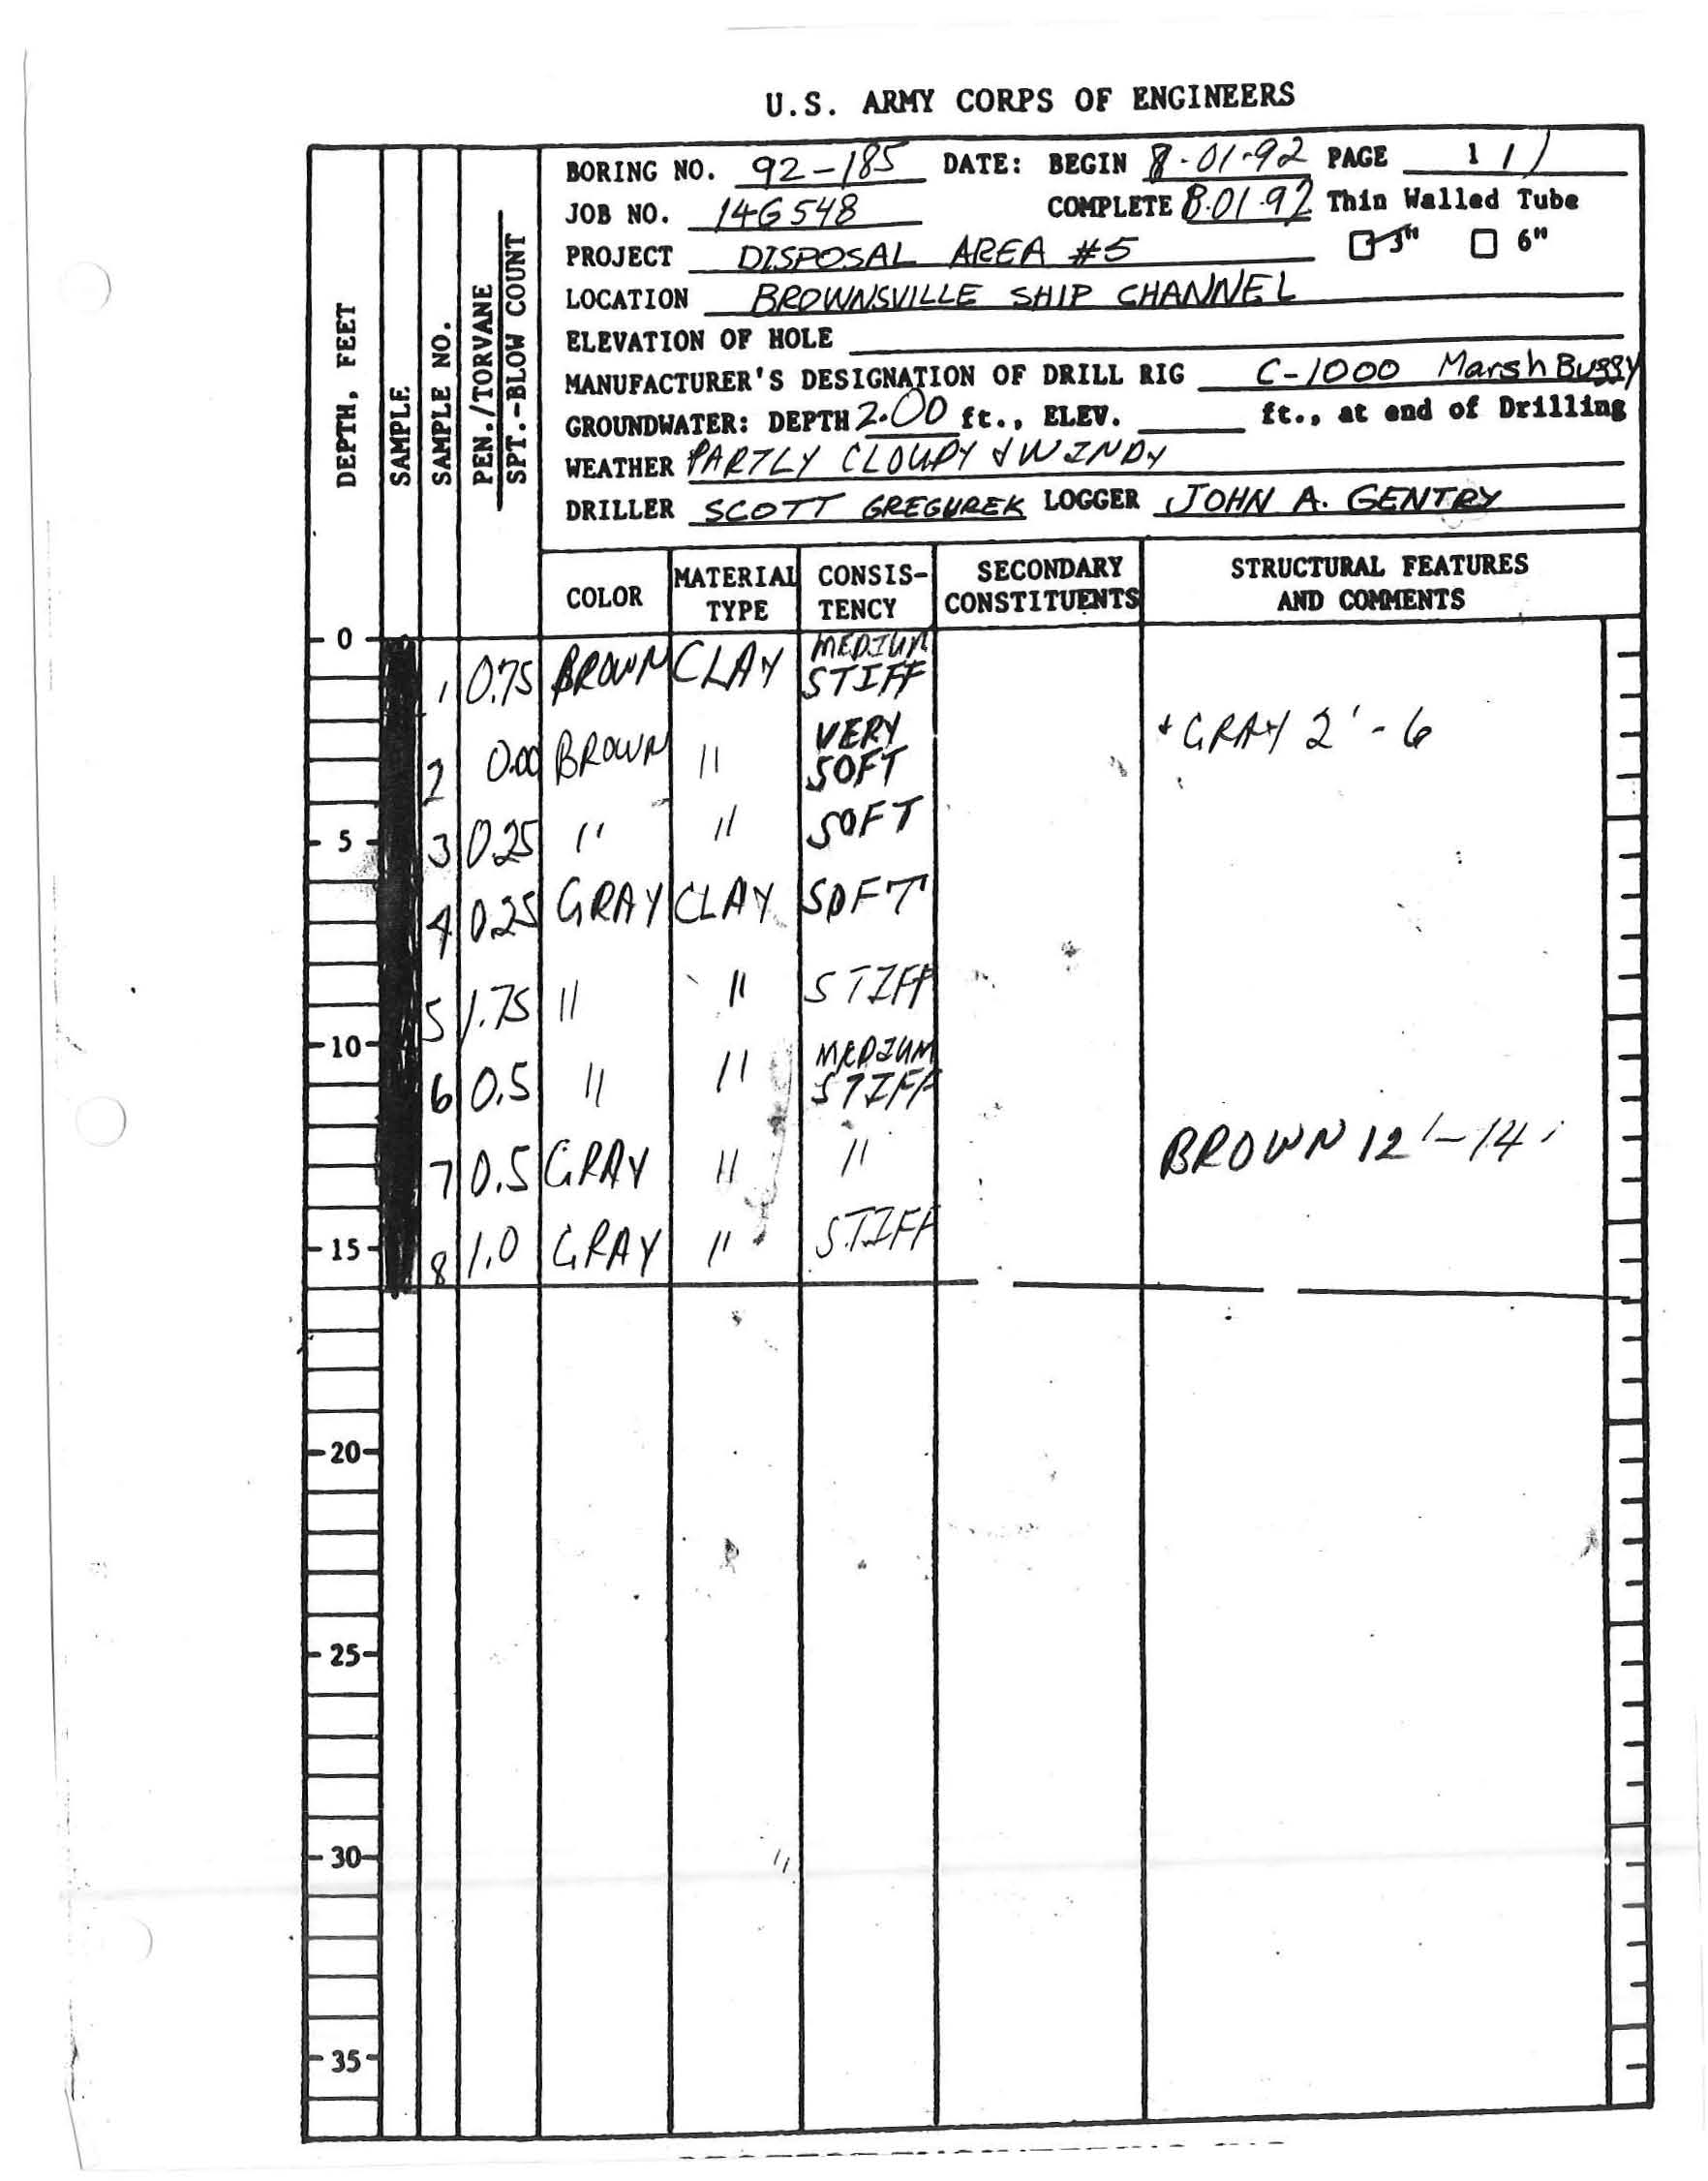 U.S. ARMY CORPS OF ENGINEERS
BORING NO. 92-185 DATE: BEGIN 8-01-92 PAGE 1 / 1
JOB NO. 14G548 COMPLETE 8-01-92 Thin Walled Tube
PROJECT DISPOSAL AREA #5 3" 6"
LOCATION BROWNSVILLE SHIP CHANNEL
ELEVATION OF HOLE
MANUFACTURER'S DESIGNATION OF DRILL RIG C-1000 Marsh Buggy
GROUNDWATER: DEPTH 2.00 ft., ELEV. ft., at end of Drilling
WEATHER PARTLY CLOUDY & WINDY
DRILLER SCOTT GREGUREK LOGGER JOHN A. GENTRY
DEPTH, FEET
SAMPLE
SAMPLE NO.
PEN./TORVANE
SPT.-BLOW COUNT
COLOR MATERIAL TYPE CONSIS-TENCY SECONDARY CONSTITUENTS STRUCTURAL FEATURES AND COMMENTS
0
1 0.75 BROWN CLAY MEDIUM STIFF
2 0.00 BROWN " VERY SOFT + GRAY 2' - 6
5
3 0.25 " " SOFT
4 0.25 GRAY CLAY SOFT
5 1.75 " " STIFF
10
6 0.5 " " MEDIUM STIFF
7 0.5 GRAY " " BROWN 12' - 14'
15
8 1.0 GRAY " STIFF
20
25
30
35